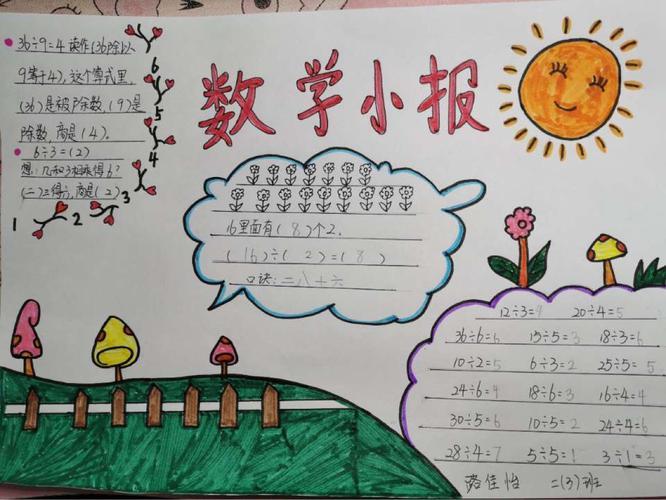 36÷9=4 读作(36除以
9等于4),这个等式里,
(36)是被除数,(9)是
除数,商是(4)。
6÷3=(2)
想:几和3相乘得6?
(二)三得六,商是(2)
1 2 3 4 5 6
数学小报
16里面有(8)个2.
(16)÷(2)=(8)
口诀:二八十六
12÷3=4 20÷4=5
36÷6=6 15÷5=3 18÷3=6
10÷2=5 6÷3=2 25÷5=5
24÷6=4 18÷6=3 16÷4=4
30÷5=6 10÷5=2 24÷4=6
28÷4=7 5÷5=1 3÷1=3
佳怡 二(3)班